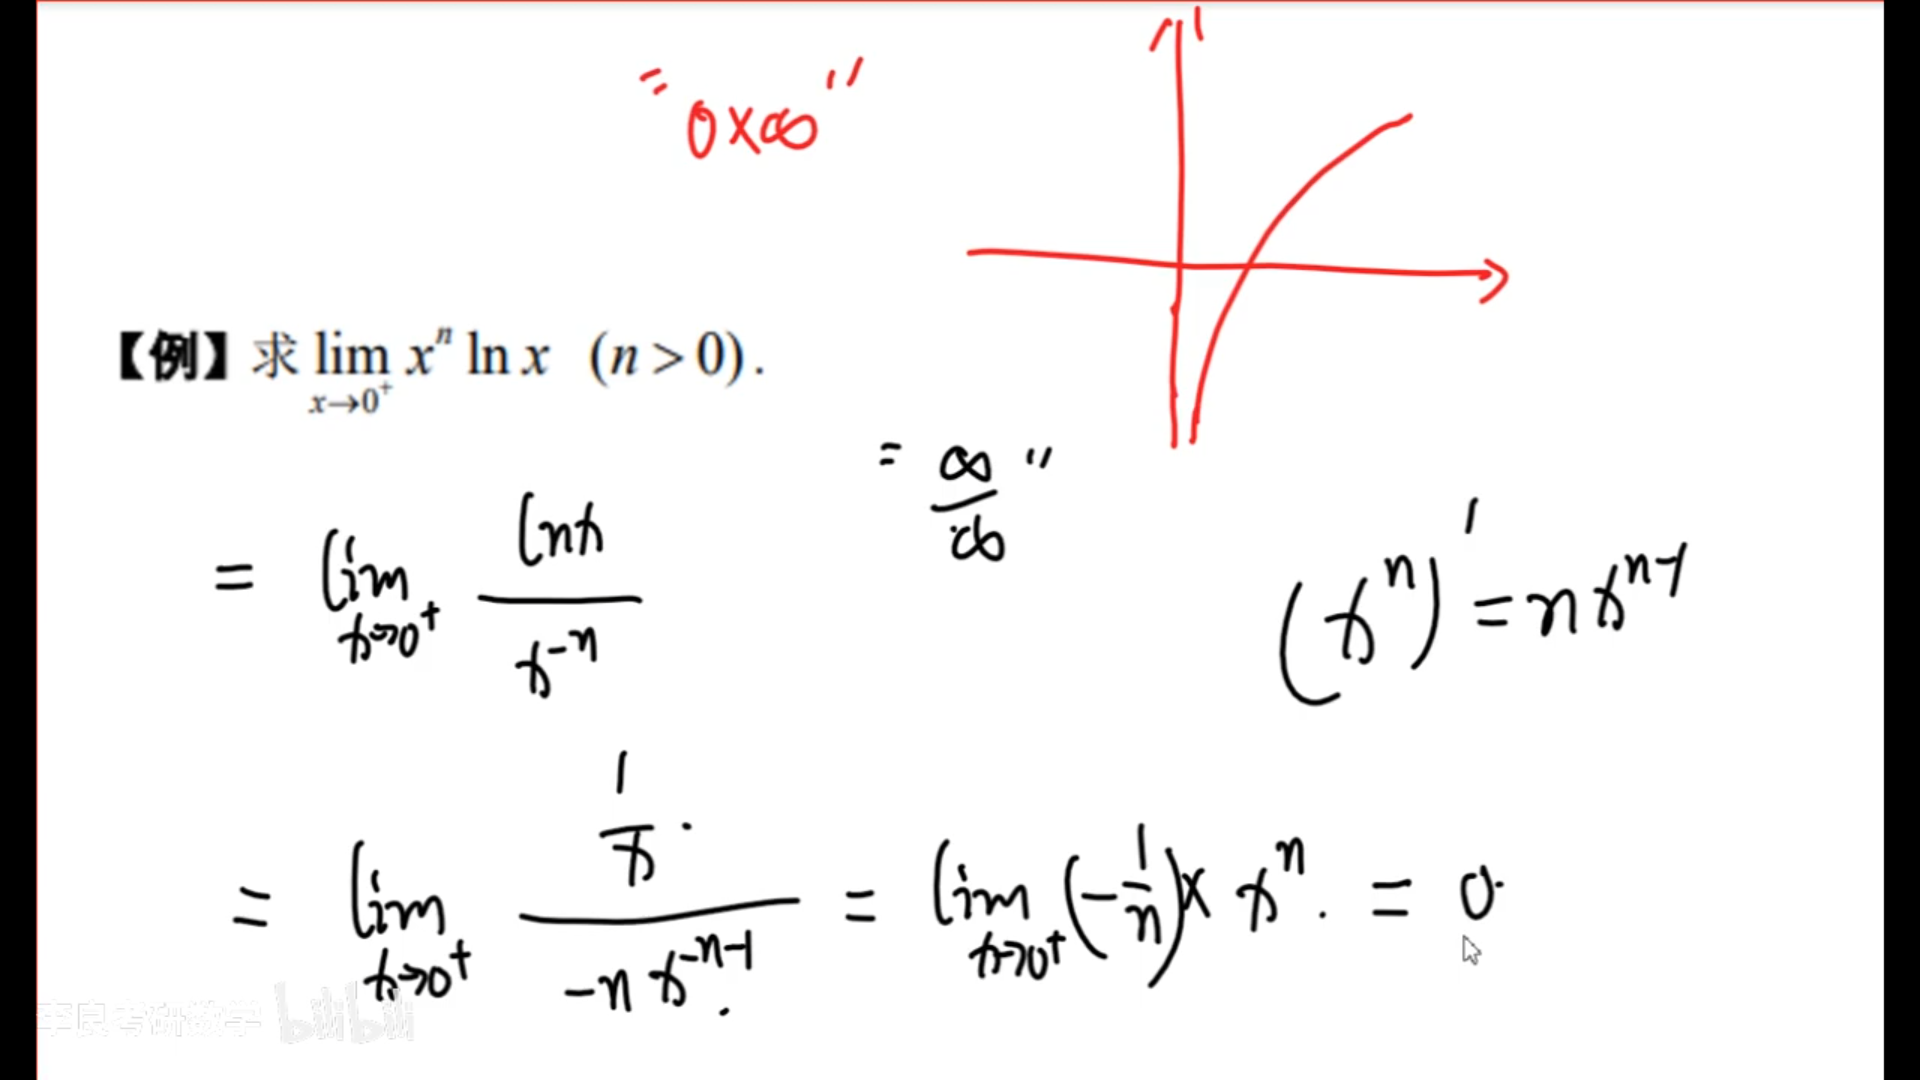 "0×∞"
【例】求 lim x→0⁺ xⁿ ln x (n > 0).
= lim x→0⁺ ln x / x⁻ⁿ "∞/∞"
(xⁿ)′ = n xⁿ⁻¹
= lim x→0⁺ (1/x) / (-n x⁻ⁿ⁻¹) = lim x→0⁺ (-1/n) × xⁿ = 0
李良考研数学 bilibili